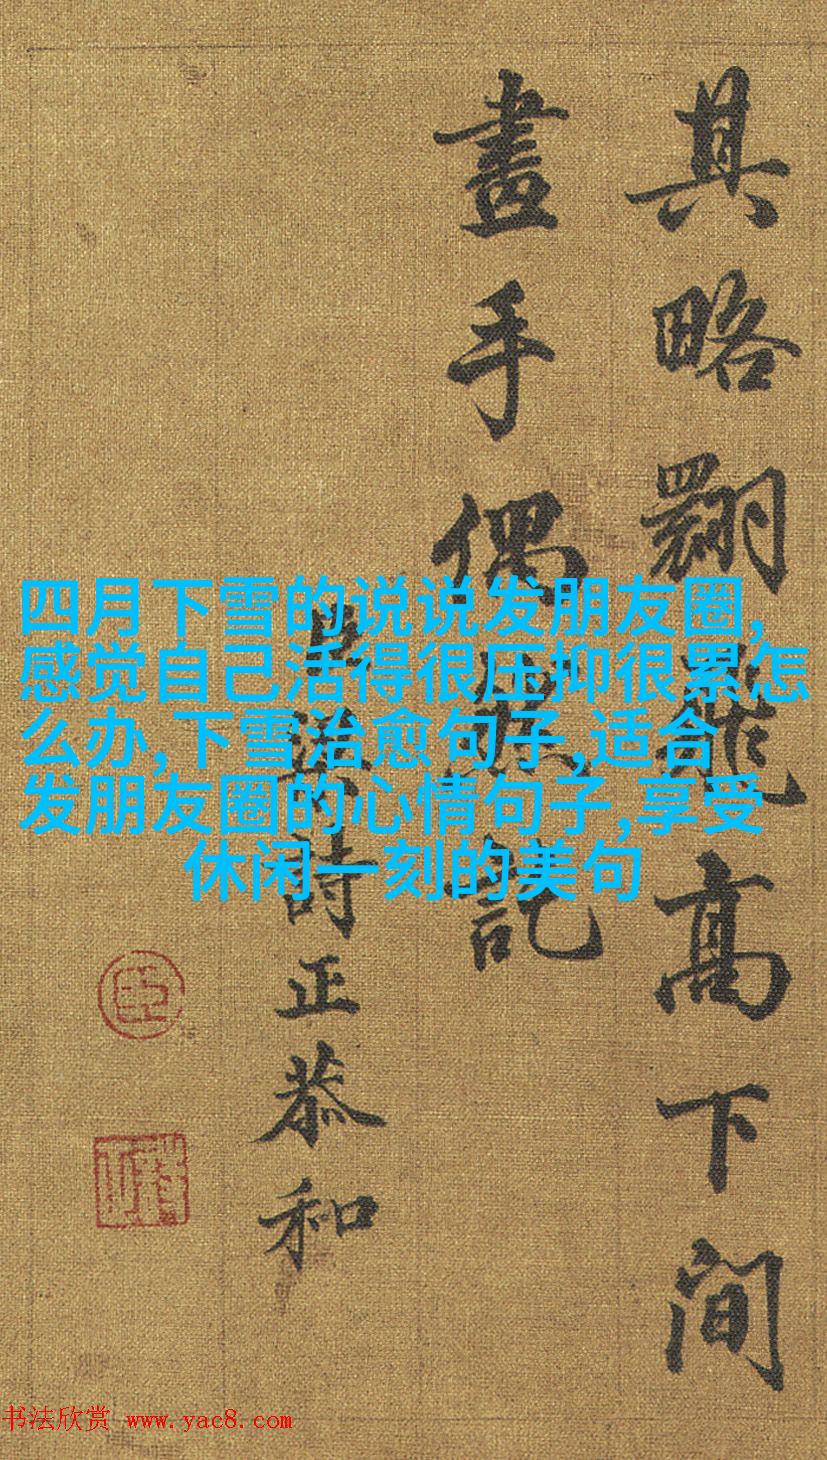 四月下雪的说说发朋友圈,
感觉自己活得很压抑很累怎
么办,下雪治愈句子,适合
发朋友圈的心情句子,享受
休闲一刻的美句
其略翾飛高下間
畫手偶託
臣梁詩正恭和
臣
书法欣赏 www.yac8.com